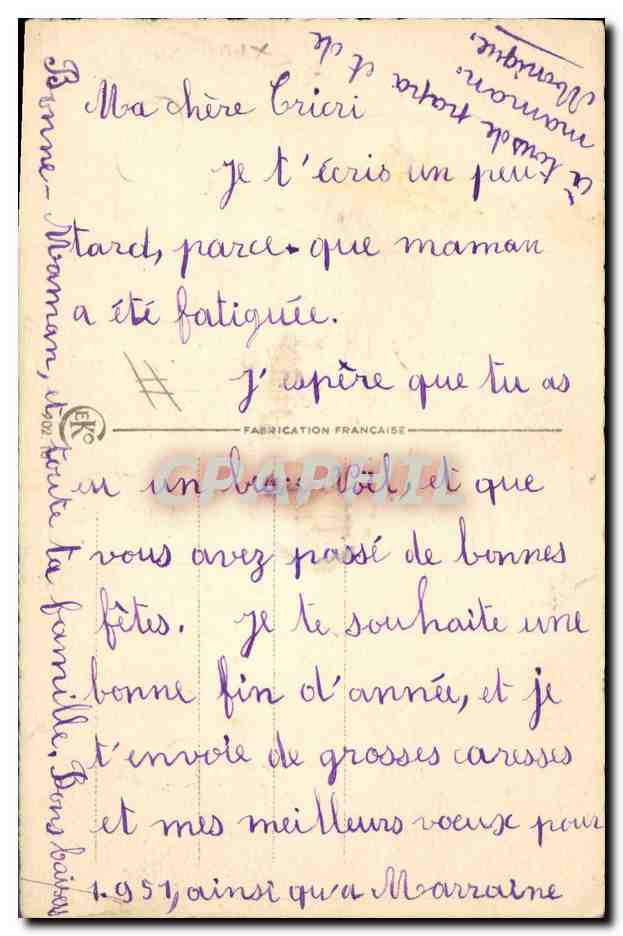 Ma chère Cricri
Je t'écris un peu
tard, parce-que maman
a été fatiguée.
J'espère que tu as
EKO
FABRICATION FRANÇAISE
CPAPHIL
eu un beau Noël, et que
vous avez passé de bonnes
fêtes. Je te souhaite une
bonne fin d'année, et je
t'envoie de grosses caresses
et mes meilleurs voeux pour
1.951, ainsi qu'a Marraine
Bonne-Maman, et toute ta famille. Bons baisers
à tous de papa et de
maman.
Monique.